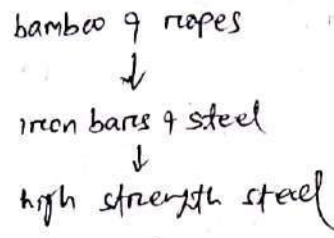 bamboo & ropes
↓
iron bars & steel
↓
high strength steel